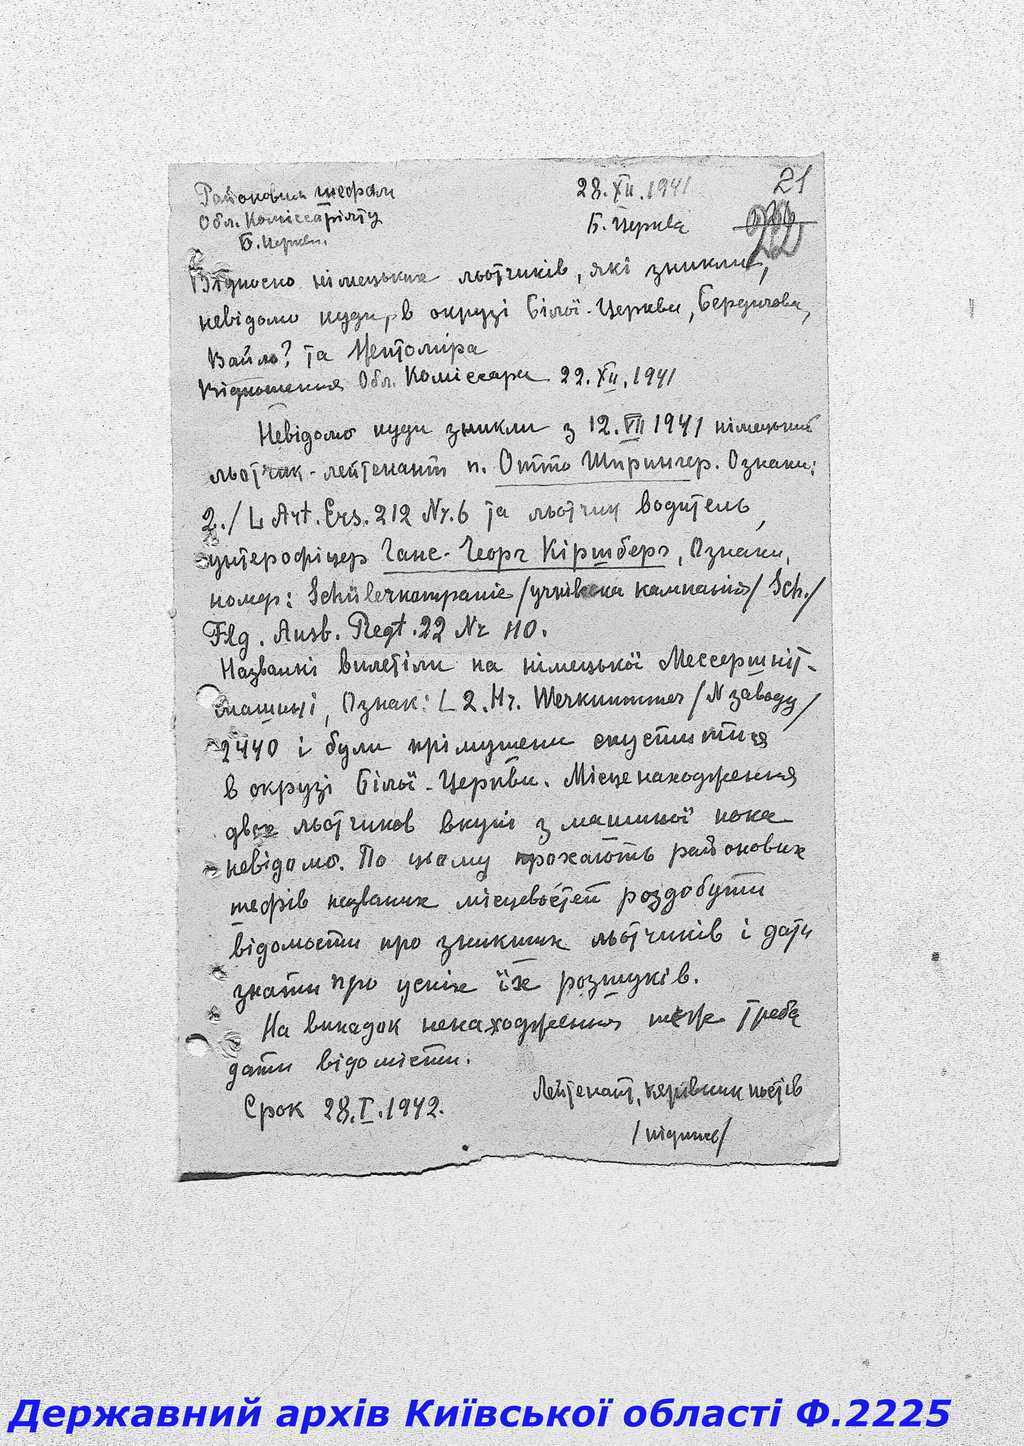 Районовим шефам
28.XII.1941
21
Обл. Коміссаріяту
Б. Церква
22
Б. Церкви.
Відносно німецьких льотчиків, які зникли,
невідомо куди, в окрузі Білої-Церкви, Бердичова,
Вайло? та Ментоміра
Відношення Обл. Коміссара 22.XII.1941
Невідомо куди зникли з 12.VII 1941 німецький
льотчик-лейтенант п. Отто Ширингер. Ознаки:
2./ L Art. Ers. 212 Nr. 6 та льотчик водитель,
унтерофіцер Ганс-Георг Кіршберг, Ознаки,
номер: Schülerkompanie /учнівська кампанія/ Sch./
Flg. Ausb. Regt. 22 Nr 110.
Названі вилетіли на німецької Мессершміт-
машині, Ознак: L 2. Nr. Werknummer /N заводу/
2440 і були прімушени спуститися
в окрузі Білої-Церкви. Місценаходження
двох льотчиков вкупі з машиної пока
невідомо. По цьому прохають районових
шефів названих місцевостей роздобути
відомости про зникших льотчиків і дати
знати про успіх їх розшуків.
На випадок ненаходження теж треба
дати відомісти.
Срок 28.I.1942.
Лейтенант, керівник постів
/підпис/
Державний архів Київської області Ф.2225